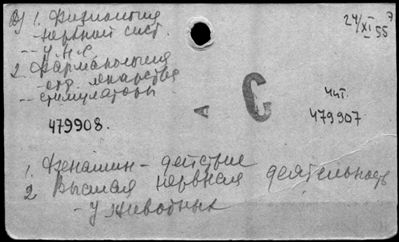 1. Физиология
24/XI 55
нервной сист.
- У.Н.С.
2. Фармакология
отд. лекарства
-- стимуляторы
A
C
чит.
479908.
479907
1. Фенамин - действие
2 Высшая нервная деятельность
- у животных